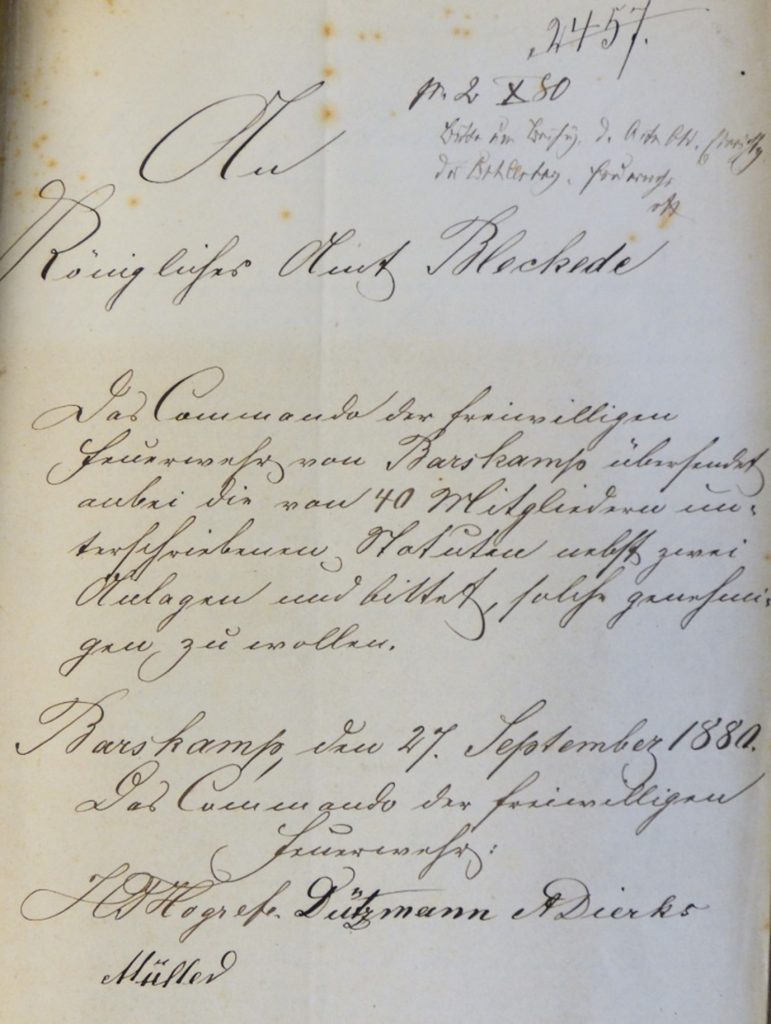 2457.
pr. 2 X 80
Bitte um
An
Königliches Amt Bleckede
Das Commando der freiwilligen
Feuerwehr von Barskamp übersendet
anbei die von 40 Mitgliedern un-
terschriebenen Statuten nebst zwei
Anlagen und bittet, solche genehmi-
gen zu wollen.
Barskamp, den 27. September 1880.
Das Commando der freiwilligen
Feuerwehr:
Hogrefe. Dützmann A Dierks
Müller